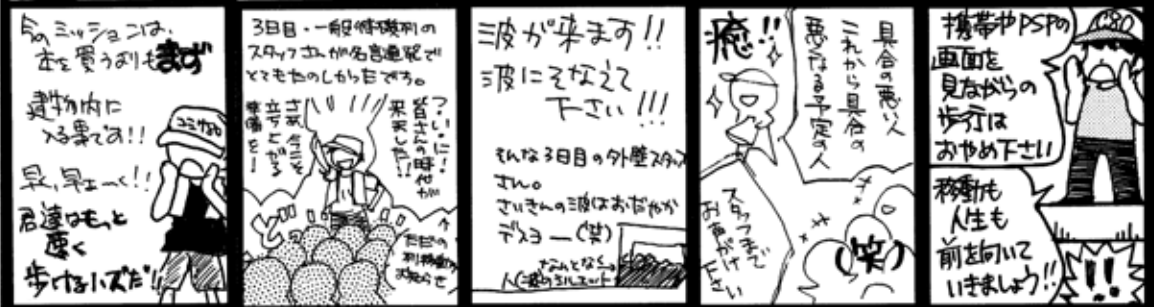 君のミッションは、
本を買うよりもまず
建物内に
入る事です!!
早く、早ぇーく!!
君達はもっと
速く
歩けるハズだ!!
コミケ80
3日目・一般待機列の
スタッフさんが名言連発で
とてもたのしかったです。
ついに!
皆さんの時代が
来ました!!
さあ、今こそ
立ち上がる
準備を!
ただの
列移動の
お知らせ
波が来ます!!
波にそなえて
下さい!!!
そんな3日目の外壁スタッフ
さん。
さいきんの波はおだやか
デスヨー(笑)
なんとなく
人(波)のシルエット
癒!!
具合の悪い人
これから具合の
悪くなる予定の人
スタッフまで
お声がけ
下さい
(笑)
C80
携帯やPSPの
画面を
見ながらの
歩行は
おやめ下さい
移動も
人生も
前を向いて
いきましょう!!
!!